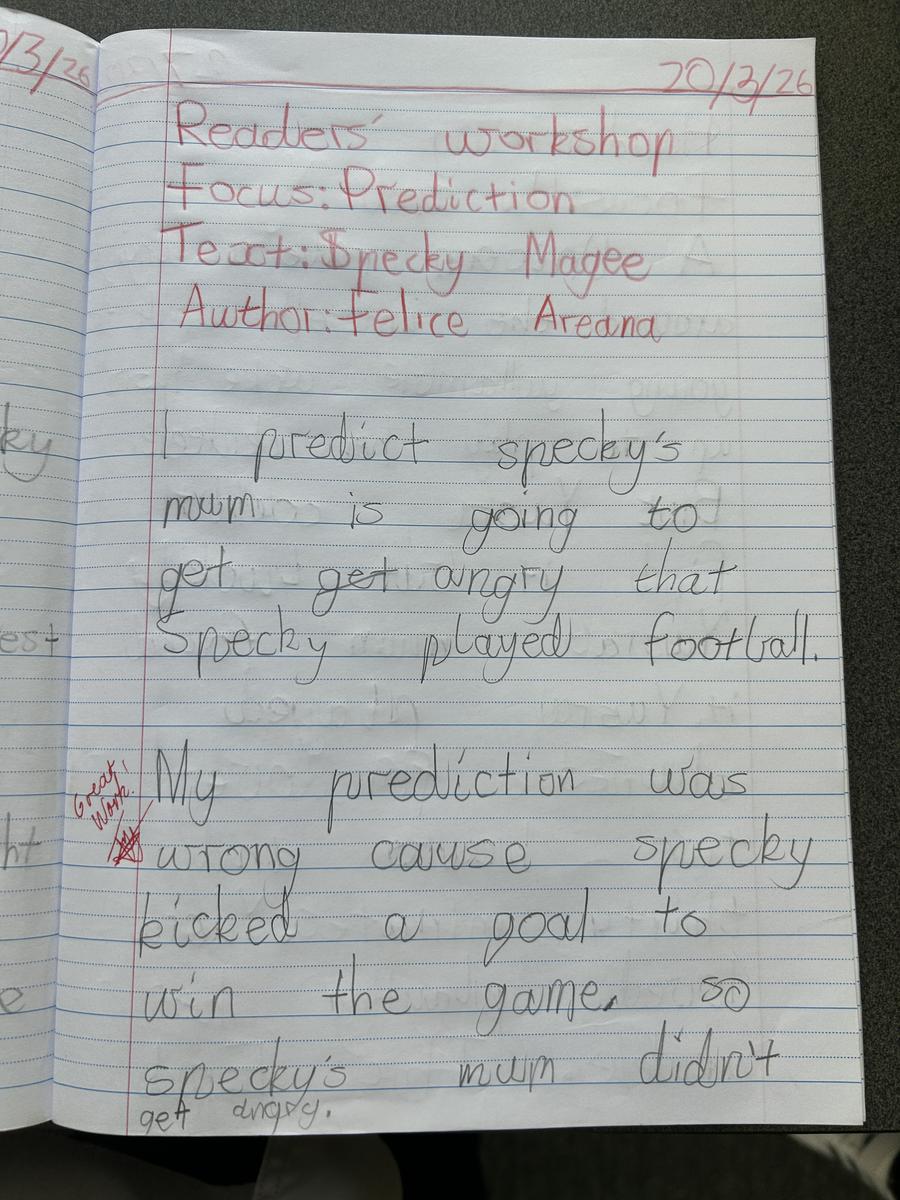 /3/26
20/3/26
Readers' workshop
Focus: Prediction
Text: Specky Magee
Author: Felice Areana
ky
I predict specky's
mum is going to
get get angry that
est
Specky played football.
Great
Work!
My prediction was
ht
wrong cause specky
kicked a goal to
e
win the game, so
specky's mum didn't
get angry.